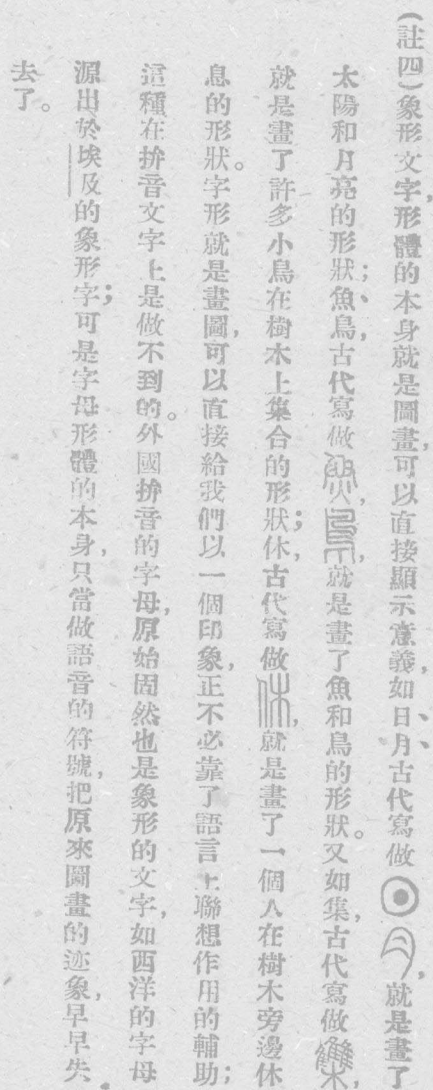 (註四)象形文字,形體的本身就是圖畫,可以直接顯示意義,如日、月、古代寫做☉,就是畫了
太陽和月亮的形狀;魚、鳥,古代寫做,就是畫了魚和鳥的形狀。又如集,古代寫做
就是畫了許多小鳥在樹木上集合的形狀;休,古代寫做,就是畫了一個人在樹木旁邊休
息的形狀。字形就是畫圖,可以直接給我們以一個印象,正不必靠了語言上聯想作用的輔助;
這種在拚音文字上是做不到的。外國拚音的字母,原始固然也是象形的文字,如西洋的字母
源出於埃及的象形字;可是字母形體的本身,只當做語音的符號,把原來圖畫的迹象,早早失
去了。